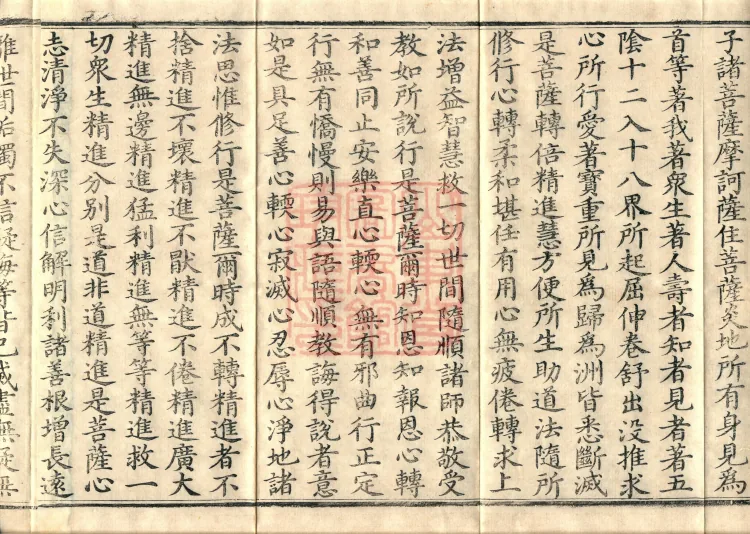 子諸菩薩摩訶薩住菩薩炎地所有身見爲
首等著我著衆生著人壽者知者見者著五
陰十二入十八界所起屈伸卷舒出没推求
心所行愛著寶重所見爲歸爲洲皆悉斷滅
是菩薩轉倍精進慧方便所生助道法隨所
修行心轉柔和堪任有用心無疲倦轉求上
法增益智慧救一切世間隨順諸師恭敬受
教如所說行是菩薩爾時知恩知報恩心轉
和善同止安樂直心輭心無有邪曲行正定
行無有憍慢則易與語隨順教誨得說者意
如是具足善心輭心寂滅心忍辱心淨地諸
法思惟修行是菩薩爾時成不轉精進者不
捨精進不壞精進不猒精進不倦精進廣大
精進無邊精進猛利精進無等等精進救一
切衆生精進分别是道非道精進是菩薩心
志清淨不失深心信解明利諸善根增長遠
離世間垢濁不信疑悔等皆已滅盡無疑無